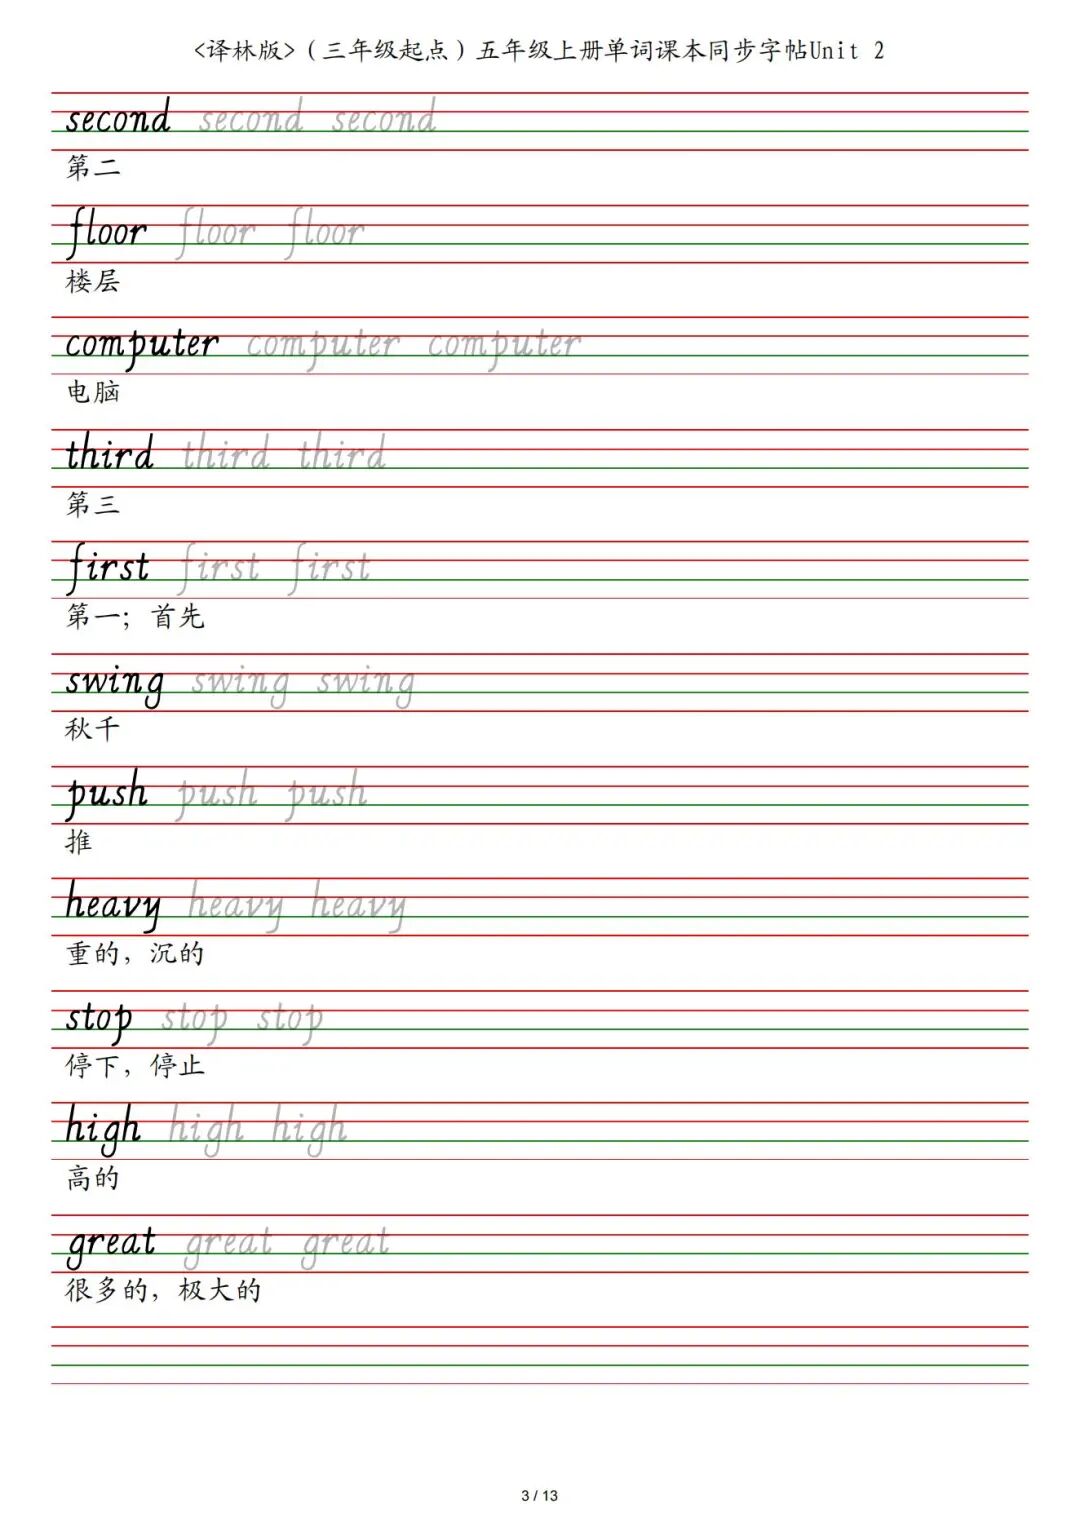 <译林版>（三年级起点）五年级上册单词课本同步字帖Unit 2
second second second
第二
floor floor floor
楼层
computer computer computer
电脑
third third third
第三
first first first
第一；首先
swing swing swing
秋千
push push push
推
heavy heavy heavy
重的，沉的
stop stop stop
停下，停止
high high high
高的
great great great
很多的，极大的
3 / 13